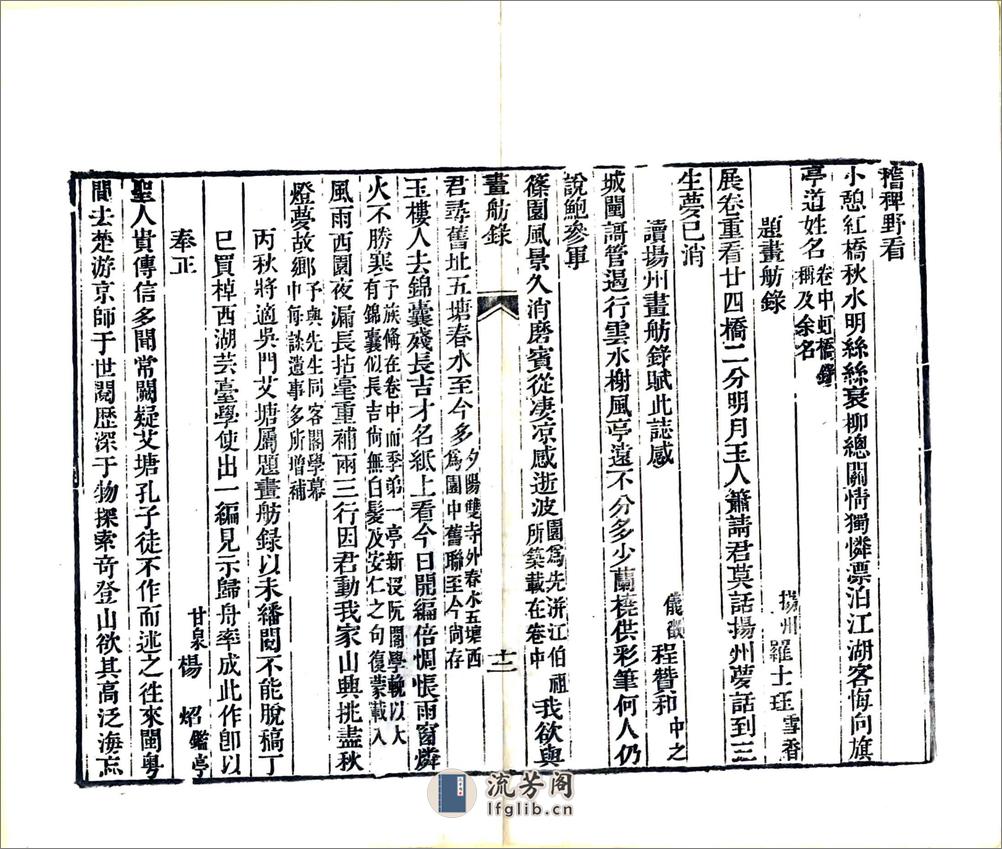 稽稗野看
小憩紅橋秋水明絲絲衰柳總關情獨憐漂泊江湖客悔向旗
亭道姓名卷中虹橋鑑稱及余名
題畫舫錄 揚州羅士珏雪香
展卷重看廿四橋二分明月玉人簫請君莫話揚州夢話到三
生夢已消
讀揚州畫舫錄賦此誌感 儀徵程贊和中之
城闉謌管遏行雲水榭風亭遠不分多少蘭橈供彩筆何人仍
說鮑參軍
篠園風景久消磨賓從凄凉感逝波園爲先洴江伯祖所築載在卷中我欲與
畫舫錄 十二
君尋舊址五塘春水至今多夕陽雙寺外春水五塘西爲園中舊聯至今尙存
玉樓人去錦囊殘長吉才名紙上看今日開編倍惆悵雨窗燐
火不勝寒予族脩在卷中而季弟一亭新没阮閣學輓以大有錦囊似長吉尙無白髮及安仁之句復蒙載入
風雨西園夜漏長拈毫重補兩三行因君動我家山興挑盡秋
燈夢故鄉予與先生同客閣學幕中每談遺事多所增補
丙秋將適吳門艾塘屬題畫舫錄以未繙閱不能脫稿丁
巳買棹西湖芸臺學使出一編見示歸舟率成此作卽以
奉正 甘泉楊炤鑑亭
聖人貴傳信多聞常闕疑艾塘孔子徒不作而述之往來閩粤
間去楚游京師于世閱歷深于物探索竒登山欲其高泛海忘
流芳阁
lfglib.cn